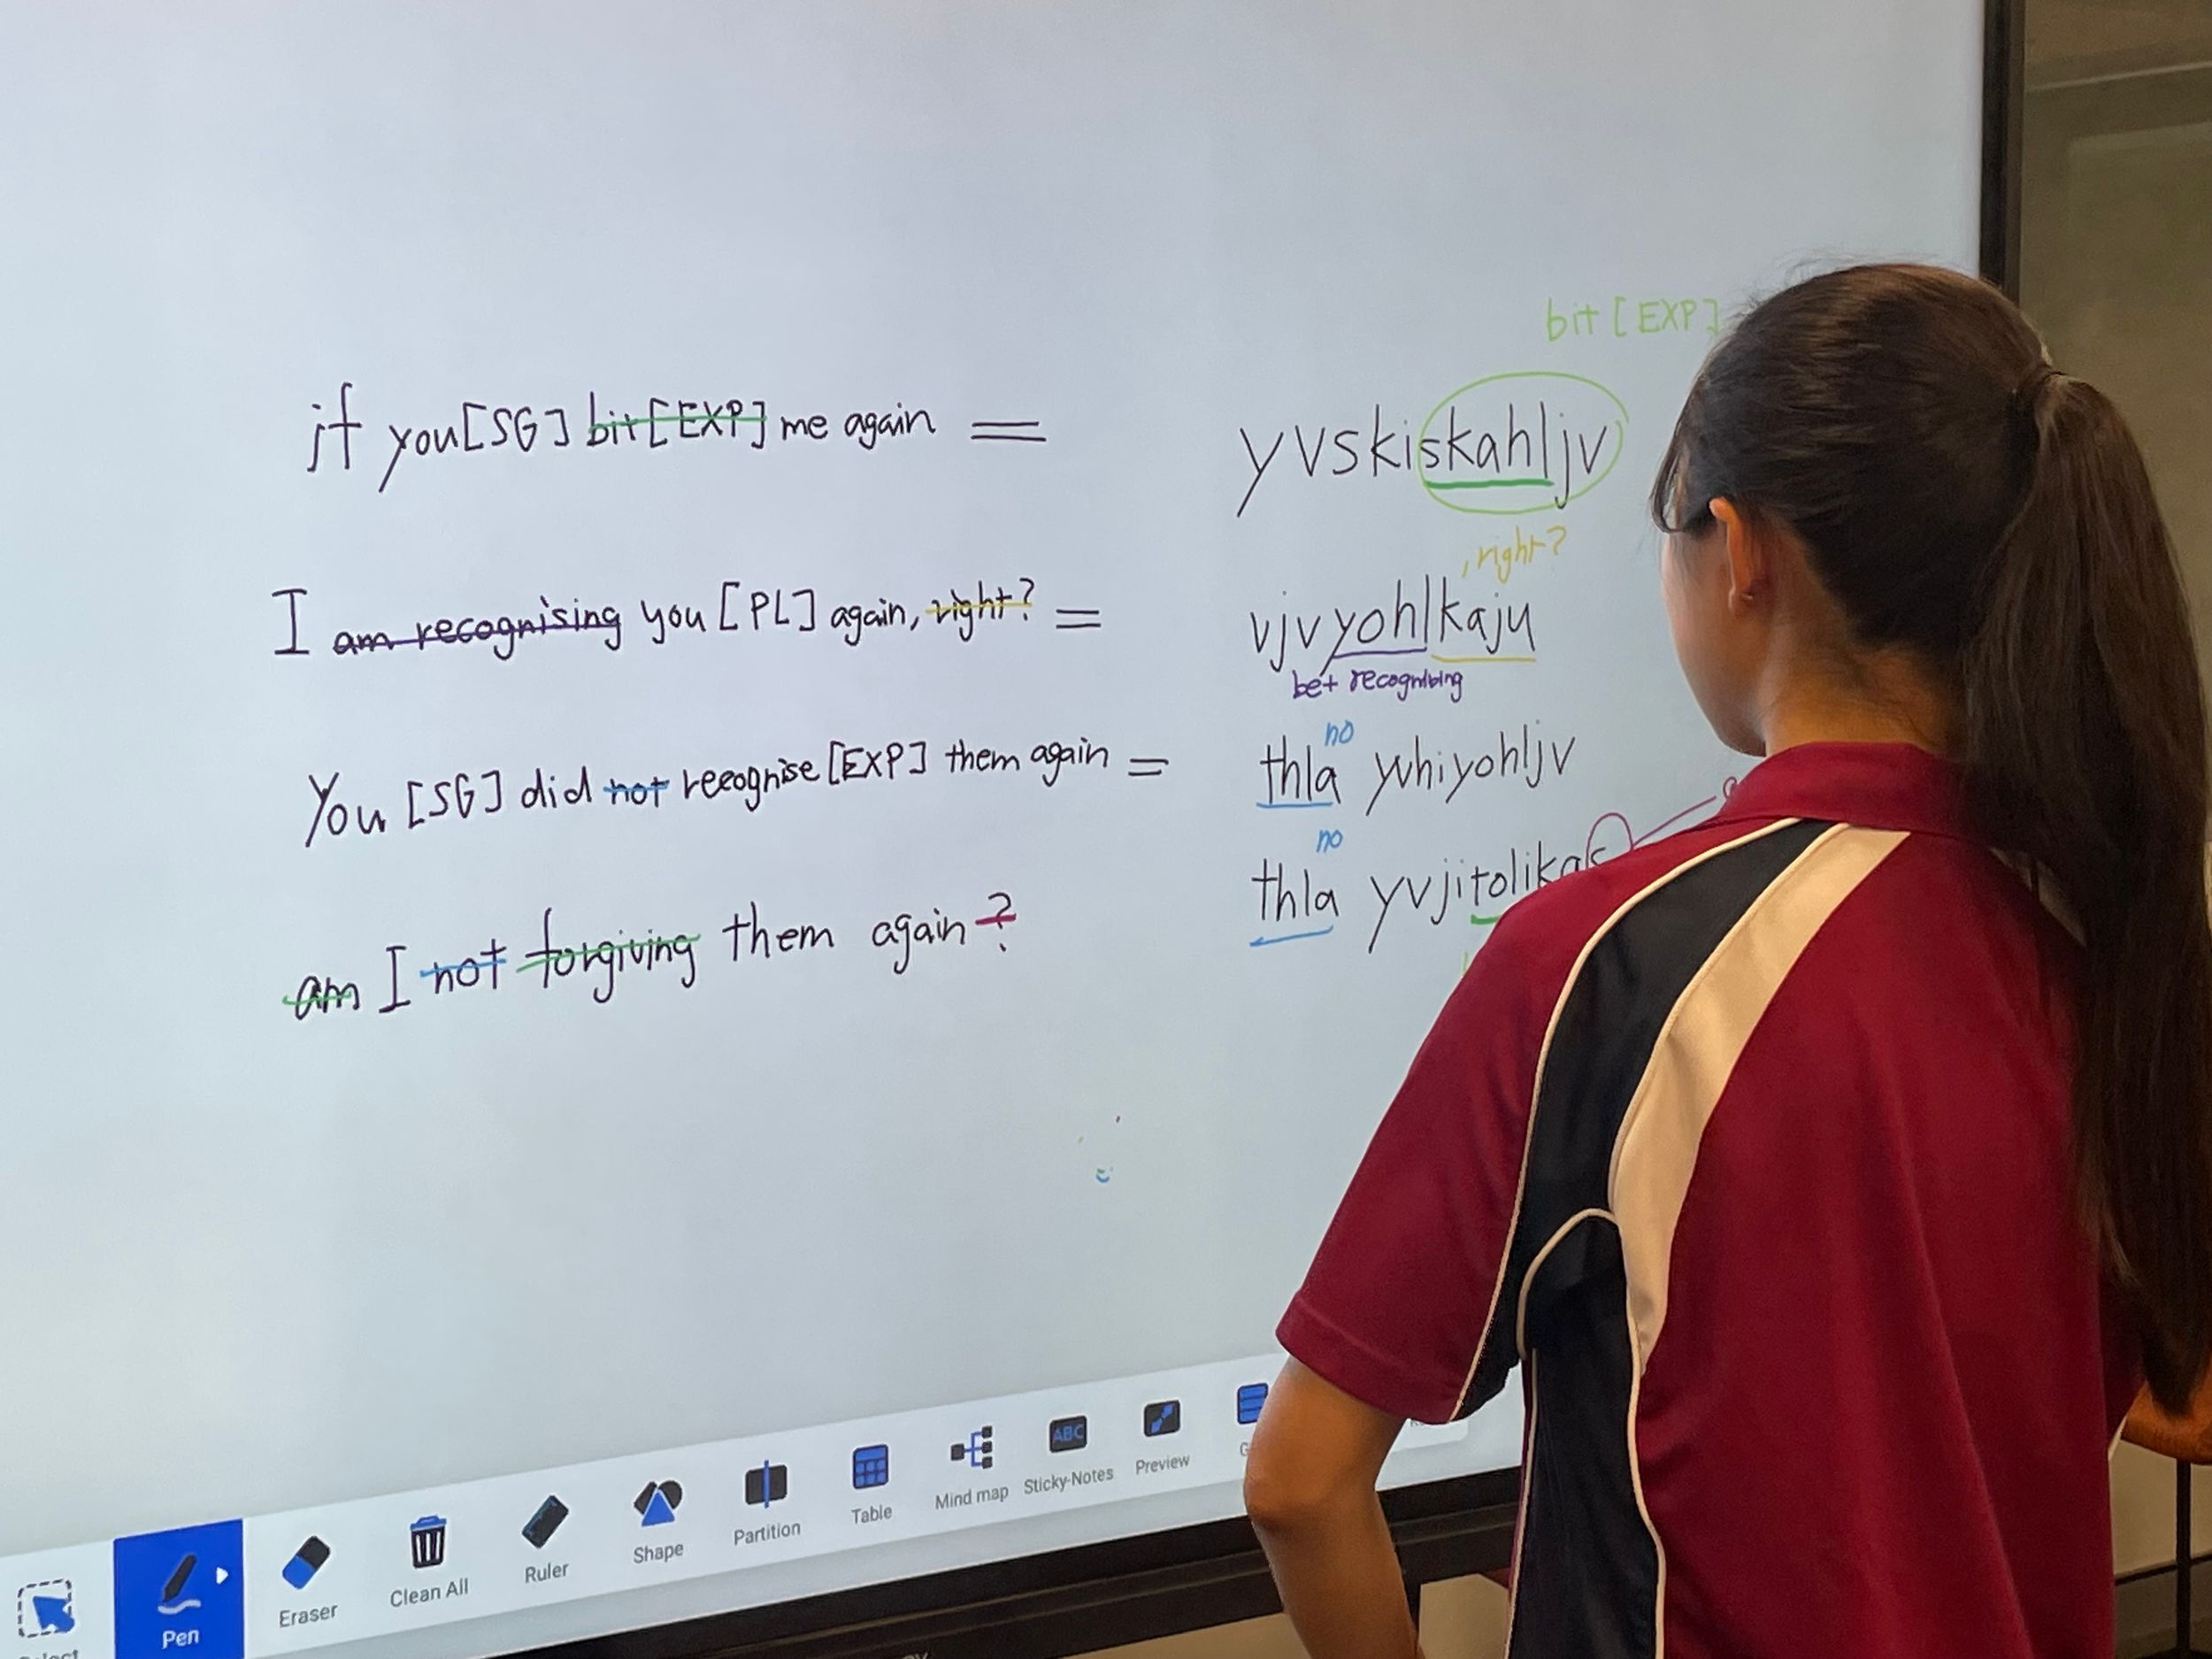 bit [EXP]
if you[SG] bit[EXP] me again = yvskiskahljv
, right?
I am recognising you [PL] again, right? = vjvyohlkaju
be+ recognising
no
You [SG] did not recognise [EXP] them again = thla yvhiyohljv
no
am I not forgiving them again? thla
Pen
Eraser
Clean All
Ruler
Shape
Partition
Table
Mind map
Sticky-Notes
ABC
Preview